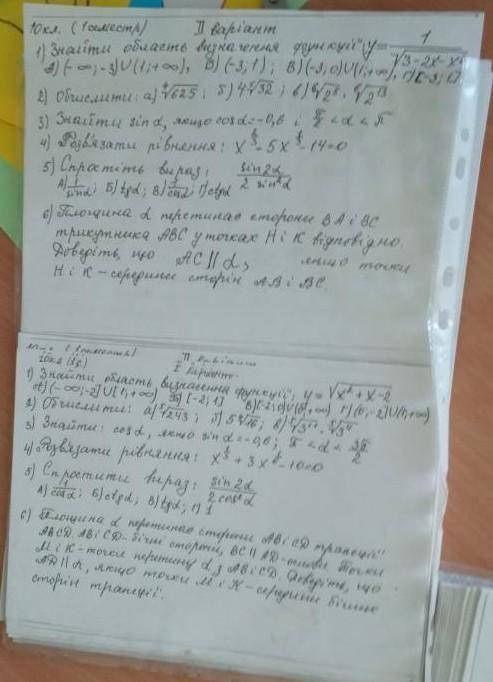 10кл. (1семестр) II варіант
1) Знайти область визначення функції: y = 1/√3-2x-x²
А) (-∞; -3)∪(1;+∞), Б) (-3; 1); В) (-3; 0)∪(1;+∞),
2) Обчислити: а) ⁴√625; б) 4⁵√32; в)
3) Знайти sin α, якщо cos α = -0,6 і π/2 < α < π
4) Розв'язати рівняння:
5) Спростіть вираз: sin2α / 2 sin²α
А) 1/sinα; Б) tgα; В) 1/cosα; Г) ctgα
6) Площина α перетинає сторони ВА і ВС
трикутника АВС у точках Н і К відповідно.
Доведіть, що АС || α, якщо точки
Н і К - середини сторін АВ і ВС.
(1семестр)
I варіант
1) Знайти область визначення функції: y = √x² + x - 2
А) (-∞; -2]∪[1; +∞) Б) [-2; 1]
2) Обчислити: а) ⁵√243; б)
3) Знайти: cos α, якщо sin α = -0,6; π < α < 3π/2
4) Розв'язати рівняння:
5) Спростити вираз: sin2α / 2cos²α
А) 1/cosα; Б) ctgα; В) tgα; Г) 1
6) Площина α перетинає сторони АВ і CD трапеції
ABCD. АВ і CD - бічні сторони, BC || AD - основи. Точки
М і К - точки перетину α з АВ і CD. Доведіть, що
AD || α, якщо точки М і К - середини бічних
сторін трапеції.